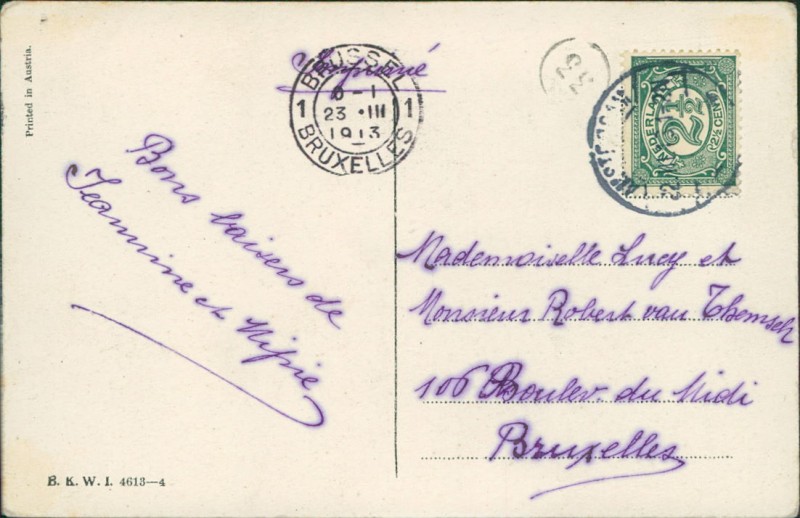 Printed in Austria.
Imprimé
BRUSSEL
6-I
1 23 ·III 11
1913
BRUXELLES
NEDERLAND
2½
(2½ CENT)
Bons baisers de
Jeannine et
Mademoiselle Lucy et
Monsieur Robert van
106 Boulev. du Midi
Bruxelles
B. K. W. I. 4613—4